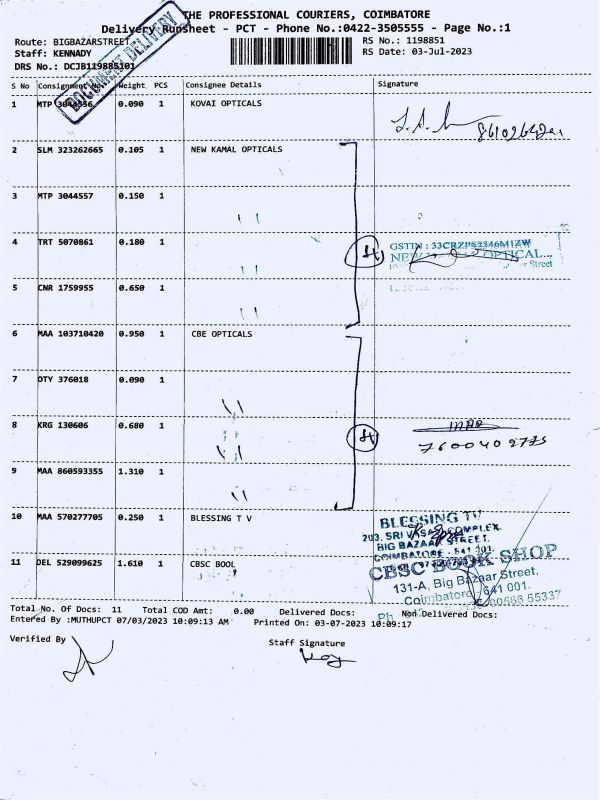 THE PROFESSIONAL COURIERS, COIMBATORE
Delivery Runsheet - PCT - Phone No.:0422-3505555 - Page No.:1
Route: BIGBAZARSTREET
RS No.: 1198851
Staff: KENNADY
RS Date: 03-Jul-2023
DRS No.: DCJB119885101
DOCUMENT DELIVERY
S No Consignment No. Weight PCS Consignee Details Signature
1 MTP 3044556 0.090 1 KOVAI OPTICALS
2 SLM 323262665 0.105 1 NEW KAMAL OPTICALS
3 MTP 3044557 0.150 1
4 TRT 5070861 0.180 1
GSTIN : 33CRZPS2346M1ZW
NEW OPTICAL...
Street
5 CNR 1759955 0.650 1
6 MAA 103710420 0.950 1 CBE OPTICALS
7 OTY 376018 0.090 1
8 KRG 130606 0.680 1
7600402775
9 MAA 860593355 1.310 1
10 MAA 570277705 0.250 1 BLESSING T V
BLESSING TV
203, SRI COMPLEX,
BIG BAZAAR STREET,
COIMBATORE - 641 001.
11 DEL 529099625 1.610 1 CBSC BOOL
CBSC BOOK SHOP
131-A, Big Bazaar Street,
Coimbatore 641 001.
Ph 80566 55337
Total No. Of Docs: 11 Total COD Amt: 0.00 Delivered Docs: Non Delivered Docs:
Entered By :MUTHUPCT 07/03/2023 10:09:13 AM Printed On: 03-07-2023 10:09:17
Verified By Staff Signature